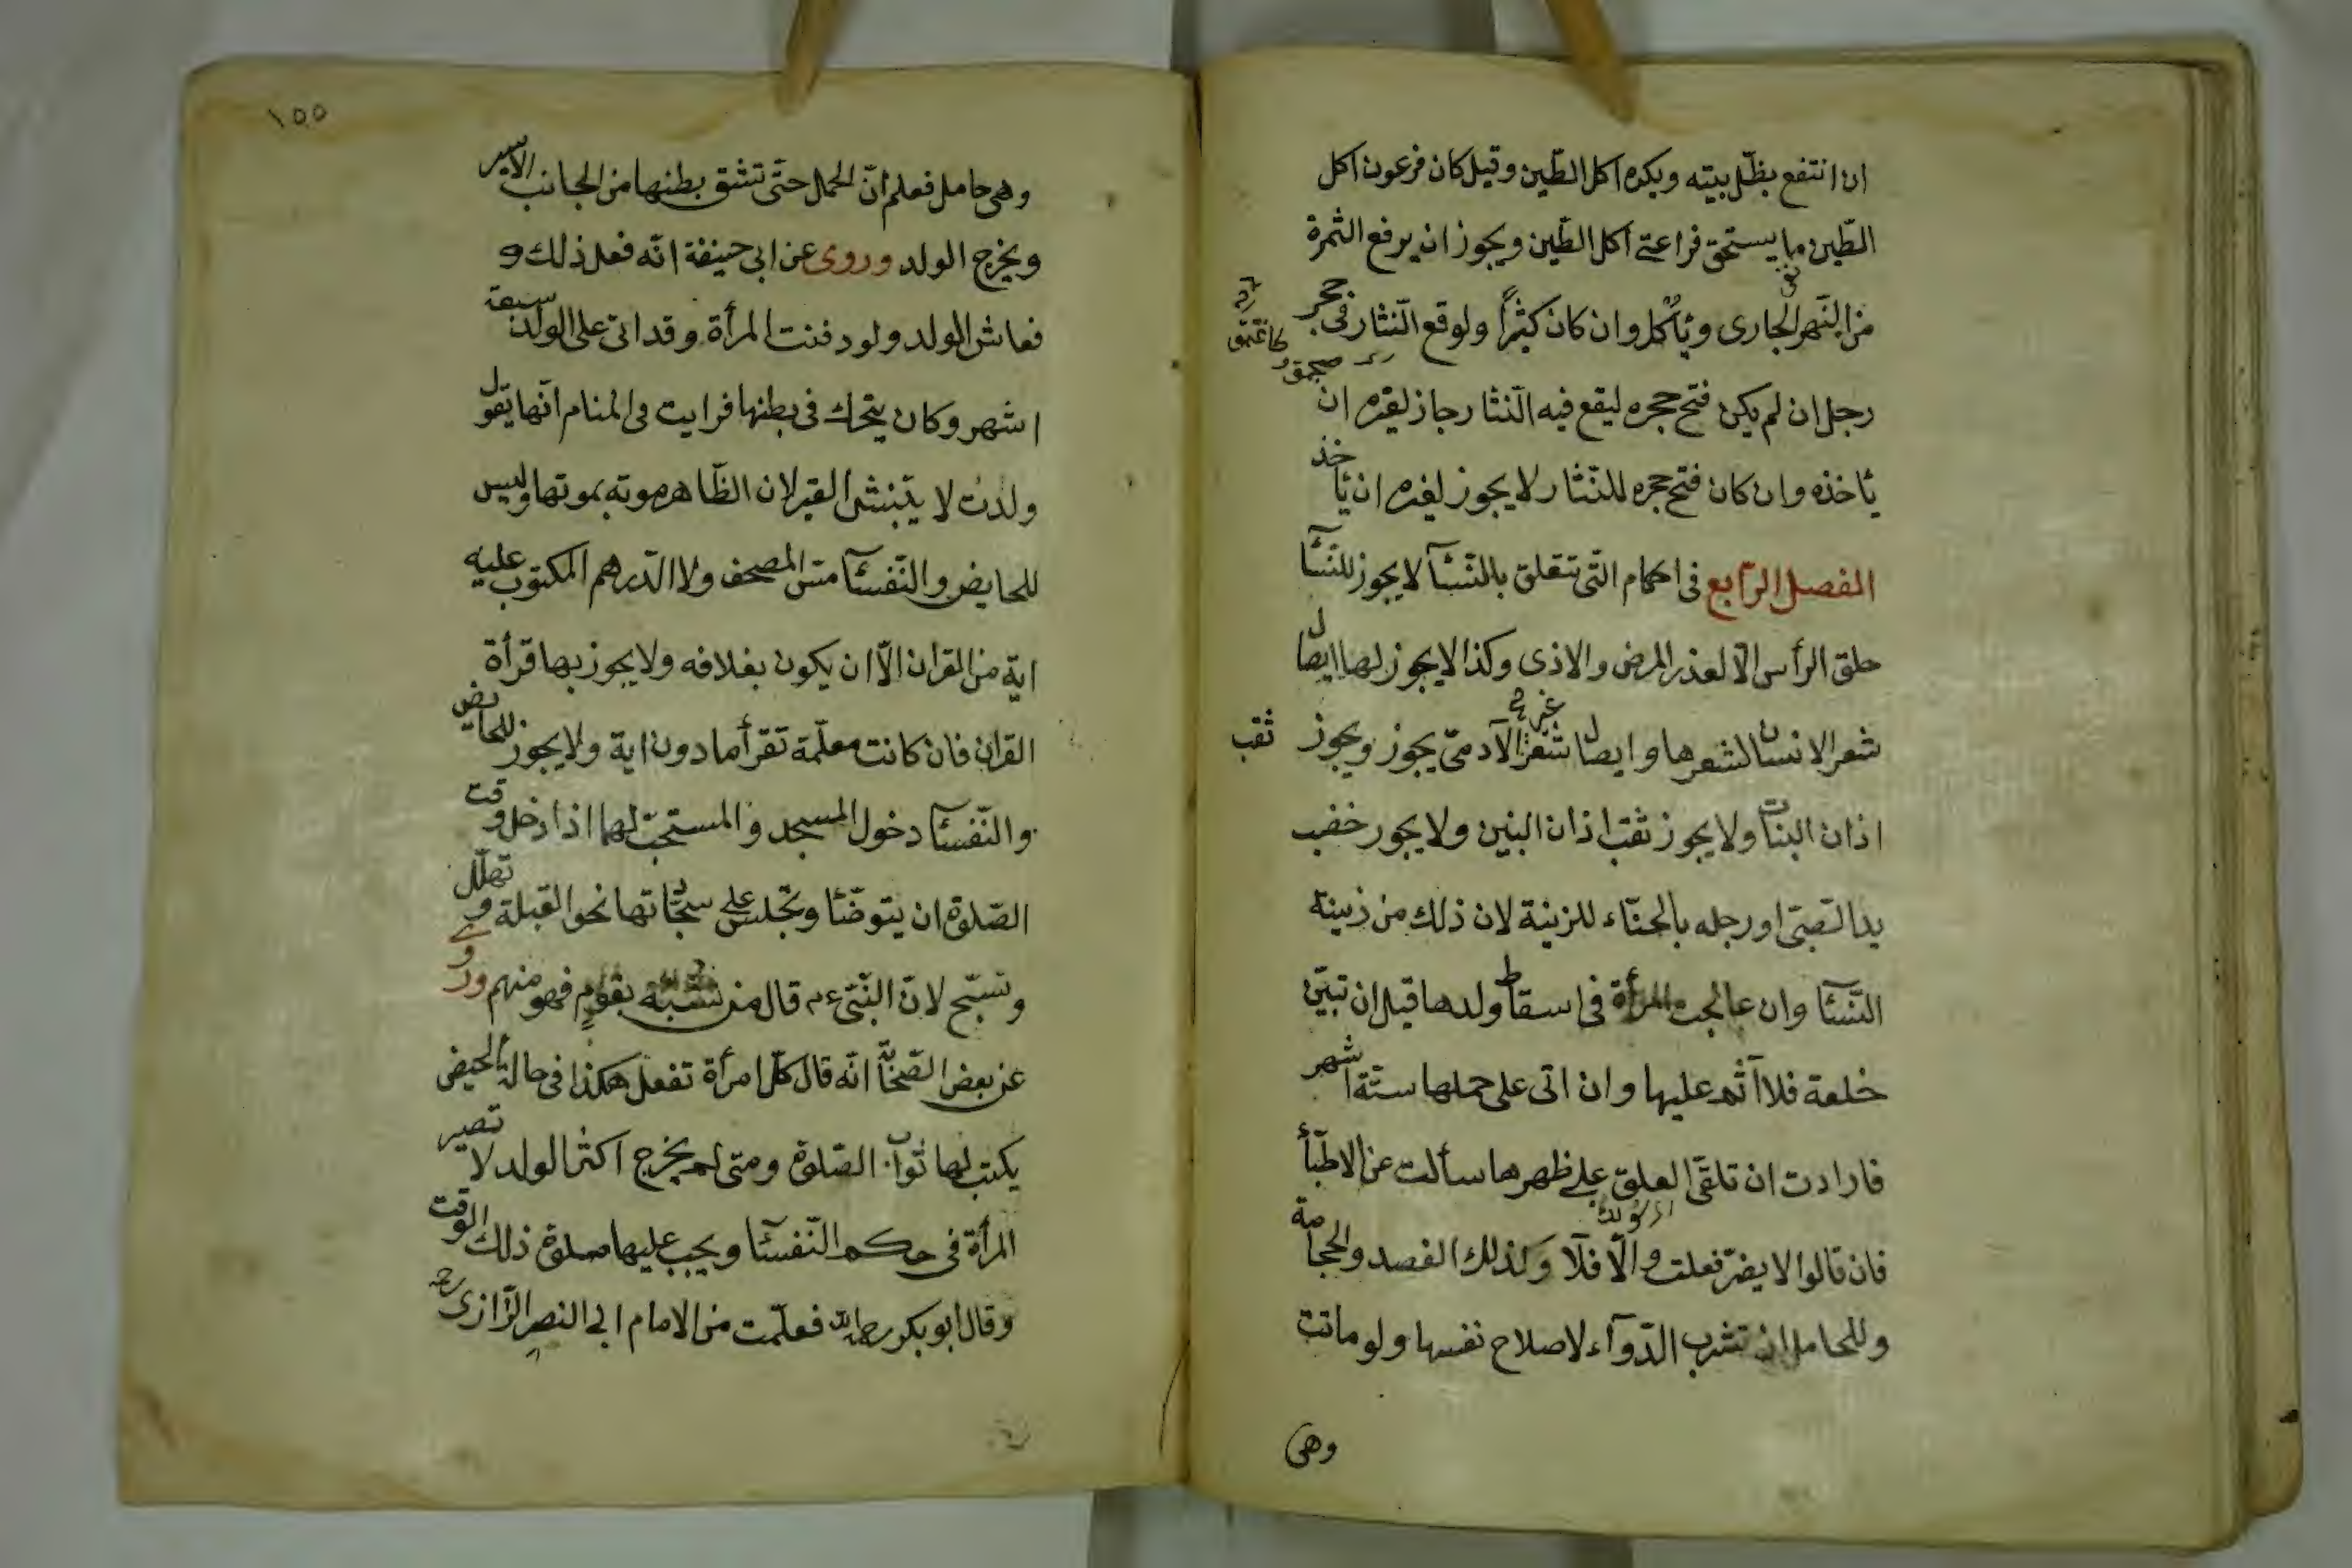 ان انتفع بظلّ بيته ويكره اكل الطّين وقيل كان فرعون اكل
الطّين ما يستحق فراعتے اكل الطّين ويجوز ان يرفع الثمرة
من النّهر الجارى ويأكل وان كان كثيرًا ولو وقع النّثار فى حجر
رجل ان لم يكن فتح حجره ليقع فيه النّثار جاز لغيره ان
يأخذه وان كان فتح حجره للنّثار لا يجوز لغيره ان يأخذ
الفصل الرّابع فى احكام التّى تتعلق بالنّسآ لا يجوز للنّسآ
حلق الرأس الّا لعذر المرض والاذى وكذا لا يجوز لها ايصال
شعر الانسان لشعرها وايصال شعر غير الآدمىّ يجوز ويجوز ثقب
اذان البنات ولا يجوز ثقب اذان البنين ولا يجوز خضب
يد الصّبىّ او رجله بالحنّاء للزينة لان ذلك من زينة
النّسآ وان عالجت المرأة فى اسقاط ولدها قبل ان تبيّن
خلقة فلا اثم عليها وان اتى على حملها ستّة اشهر
فارادت ان تلقى العلق على ظهرها سألت عن الاطبّأ
فان قالوا لا يضرّ فعلت والّا فلا وكذلك الفصد والحجامة
وللحامل ان تشرب الدّوآء لاصلاح نفسها ولو ماتت
وهى
١٥٥
وهى حامل فعلم انّ الحمل حتّى تشق بطنها من الجانب الايسر
ويخرج الولد وروى عن ابى حنيفة انّه فعل ذلك و
فعاش الولد ولو دفنت المرأة وقد اتى على الولد سبعة
اشهر وكان يتحرك فى بطنها فرايت فى المنام انّها تقول
ولدت لا يتنبش القبر لان الظّاهر موته بموتها وليس
للحايض والنّفسآ مسّ المصحف ولا الدّرهم المكتوب عليه
اية من القران الّا ان يكون بغلافه ولا يجوز بها قرأة
القران فان كانت معلّمة تقرأ ما دون اية ولا يجوز للحايض
والنّفسآ دخول المسجد والمستحبّ لهما اذا دخل وقت
الصّلوة ان يتوضّأ وتجلس على سجّادتها نحو القبلة وتهلّل
وتسبّح لانّ النّبىّ عم قال من تشبّه بقوم فهو منهم وروى
عن بعض الصّحابة انّه قال كلّ امرأة تفعل هكذا فى حالة الحيض
يكتب لها ثواب الصّلوة ومتى لم يخرج اكثر الولد لا تصير
المرأة فى حكم النّفسآ ويجب عليها صلوة ذلك الوقت
وقال ابو بكر رحمه الله فعلّمت من الامام ابى النصر الرّازى رحمه